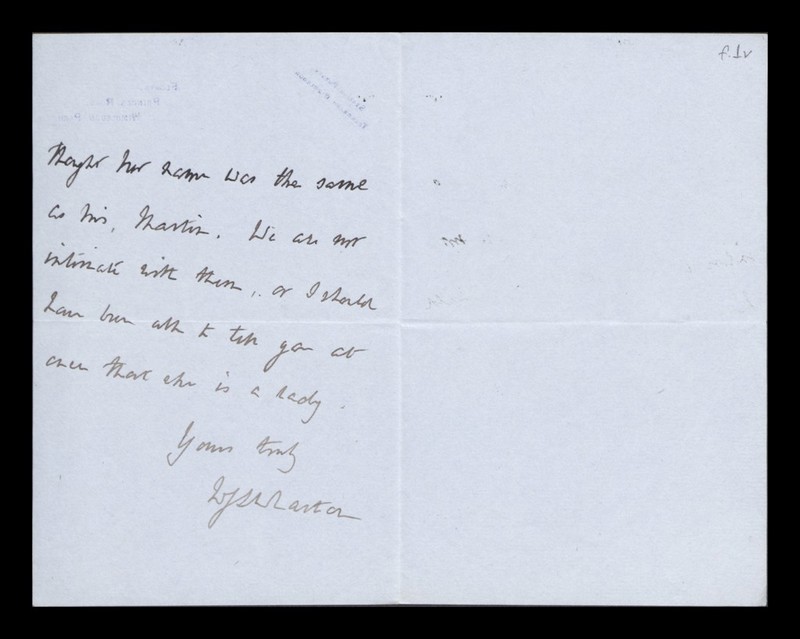 thought her name was the same
as his, Martin. We are not
intimate with them, or I should
have been able to tell you at
once that she is a lady.
Yours truly
WJLWharton
f.1v